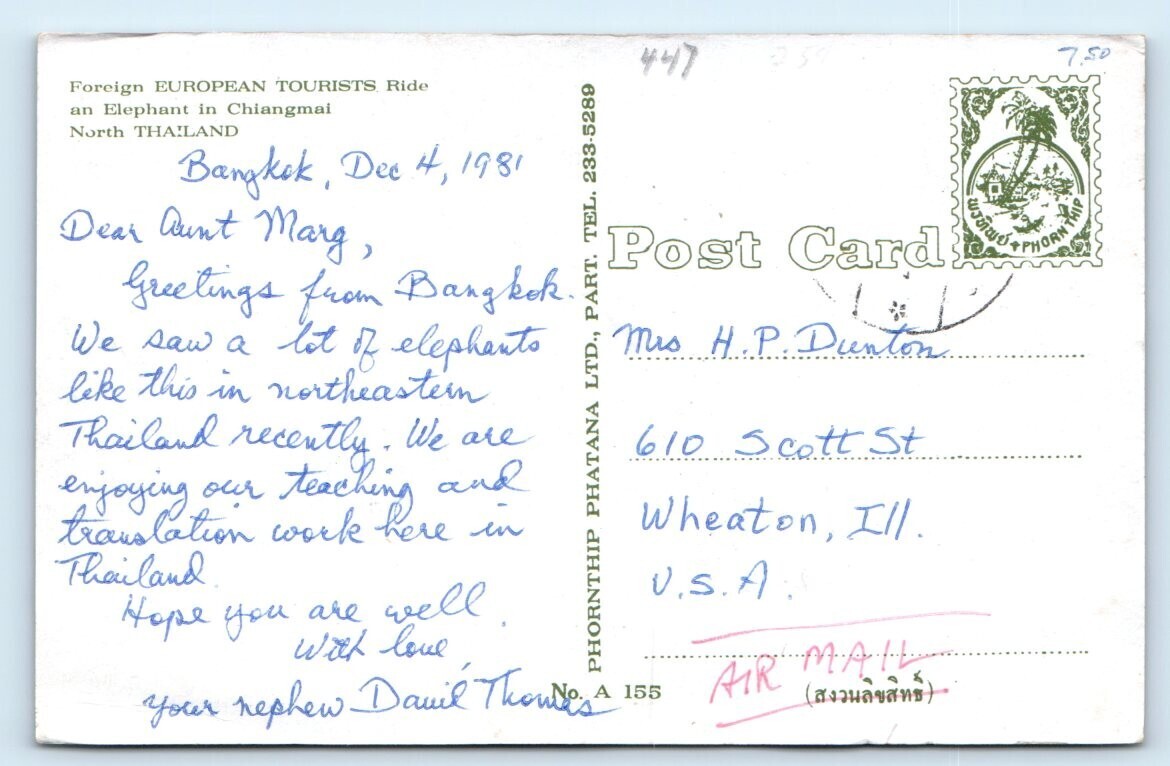 447
7.50
Foreign EUROPEAN TOURISTS Ride
an Elephant in Chiangmai
North THAILAND
Bangkok, Dec 4, 1981
Dear Aunt Marg,
Greetings from Bangkok.
We saw a lot of elephants
like this in northeastern
Thailand recently. We are
enjoying our teaching and
translation work here in
Thailand.
Hope you are well.
With love,
your nephew David Thomas
PHORNTHIP PHATANA LTD., PART. TEL. 233-5289
No. A 155
Post Card
พรทิพย์ PHORNTHIP
Mrs H.P. Dunton
610 Scott St
Wheaton, Ill.
U.S.A.
AIR MAIL
(สงวนลิขสิทธิ์)